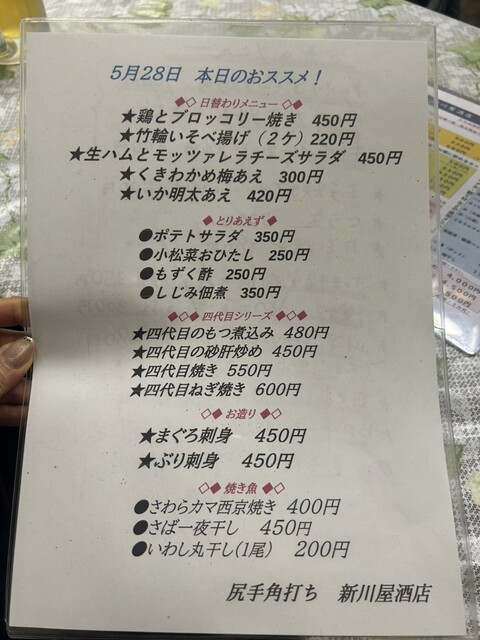 5月28日 本日のおススメ!
◆◇ 日替わりメニュー ◇◆
★鶏とブロッコリー焼き 450円
★竹輪いそべ揚げ(2ケ)220円
★生ハムとモッツァレラチーズサラダ 450円
★くきわかめ梅あえ 300円
★いか明太あえ 420円
◆ とりあえず ◆
●ポテトサラダ 350円
●小松菜おひたし 250円
●もずく酢 250円
●しじみ佃煮 350円
◆◇◆ 四代目シリーズ ◇◆◇
★四代目のもつ煮込み 480円
★四代目の砂肝炒め 450円
★四代目焼き 550円
★四代目ねぎ焼き 600円
◇◆ お造り ◆◇
★まぐろ刺身 450円
★ぶり刺身 450円
◇◆ 焼き魚 ◆◇
●さわらカマ西京焼き 400円
●さば一夜干し 450円
●いわし丸干し(1尾) 200円
尻手角打ち 新川屋酒店